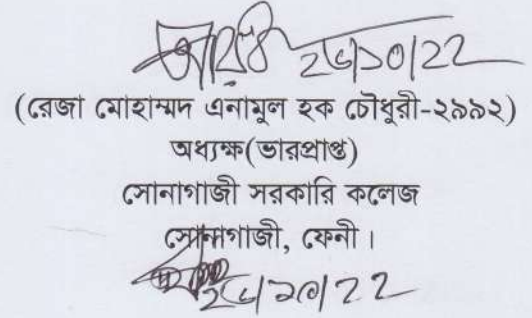 ২৬/১০/22
(রেজা মোহাম্মদ এনামুল হক চৌধুরী-২৯৯২)
অধ্যক্ষ(ভারপ্রাপ্ত)
সোনাগাজী সরকারি কলেজ
সোনাগাজী, ফেনী।
২৬/১০/22